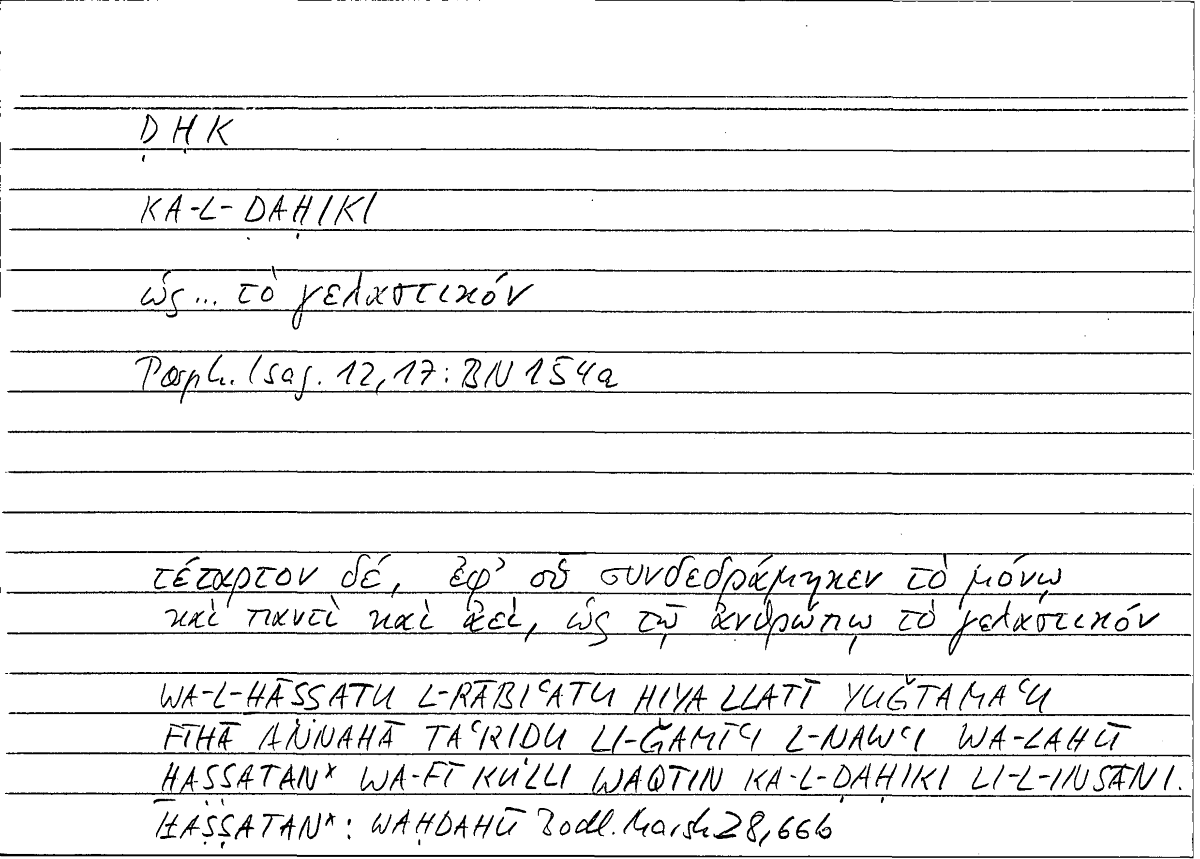 ḌḤK
KA-L-ḌAḤIKI
ὡς... τὸ γελαστικόν
Porph. Isag. 12,17: BN 154a
τέταρτον δέ, ἐφ' οὗ συνδεδράμηκεν τὸ μόνῳ
καὶ παντὶ καὶ ἀεί, ὡς τῷ ἀνθρώπῳ τὸ γελαστικόν
WA-L-ḪĀṢṢATU L-RĀBIʿATU HIYA LLATĪ YUǦTAMAʿU
FĪHĀ ANNAHĀ TAʿRIḌU LI-ǦAMĪʿI L-NAWʿI WA-LAHŪ
ḪAṢṢATAN* WA-FĪ KULLI WAQTIN KA-L-ḌAḤIKI LI-L-INSĀNI.
ḪAṢṢATAN*: WAḤDAHŪ Bodl. Marsh 28,66b